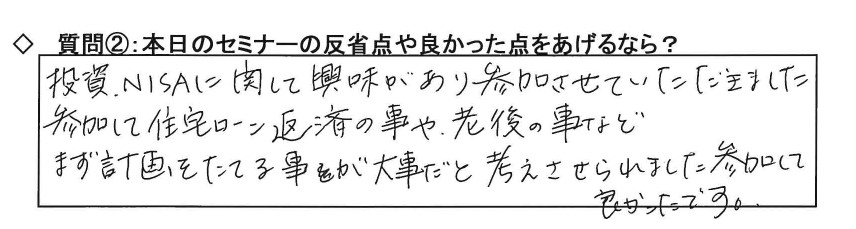 ◇ 質問②：本日のセミナーの反省点や良かった点をあげるなら？
投資、NISAに関して興味があり参加させていただきました
参加して住宅ローン返済の事や、老後の事など
まず計画をたてる事が大事だと考えさせられました参加して
良かったです。